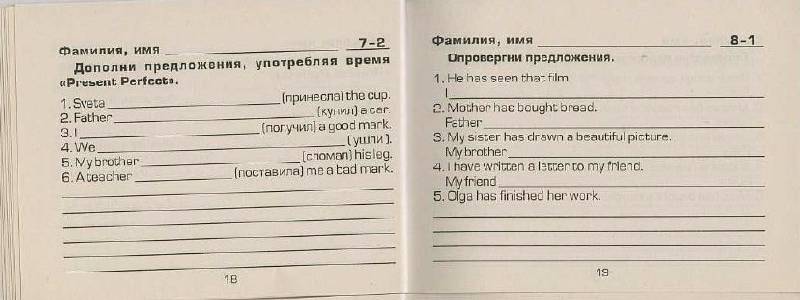 Фамилия, имя 7-2
Дополни предложения, употребляя время
«Present Perfect».
1. Sveta (принесла) the cup.
2. Father (купил) a car.
3. I (получил) a good mark.
4. We (ушли).
5. My brother (сломал) his leg.
6. A teacher (поставила) me a bad mark.
18
Фамилия, имя 8-1
Опровергни предложения.
1. He has seen that film.
I
2. Mother has bought bread.
Father
3. My sister has drawn a beautiful picture.
My brother
4. I have written a letter to my friend.
My friend
5. Olga has finished her work.
19